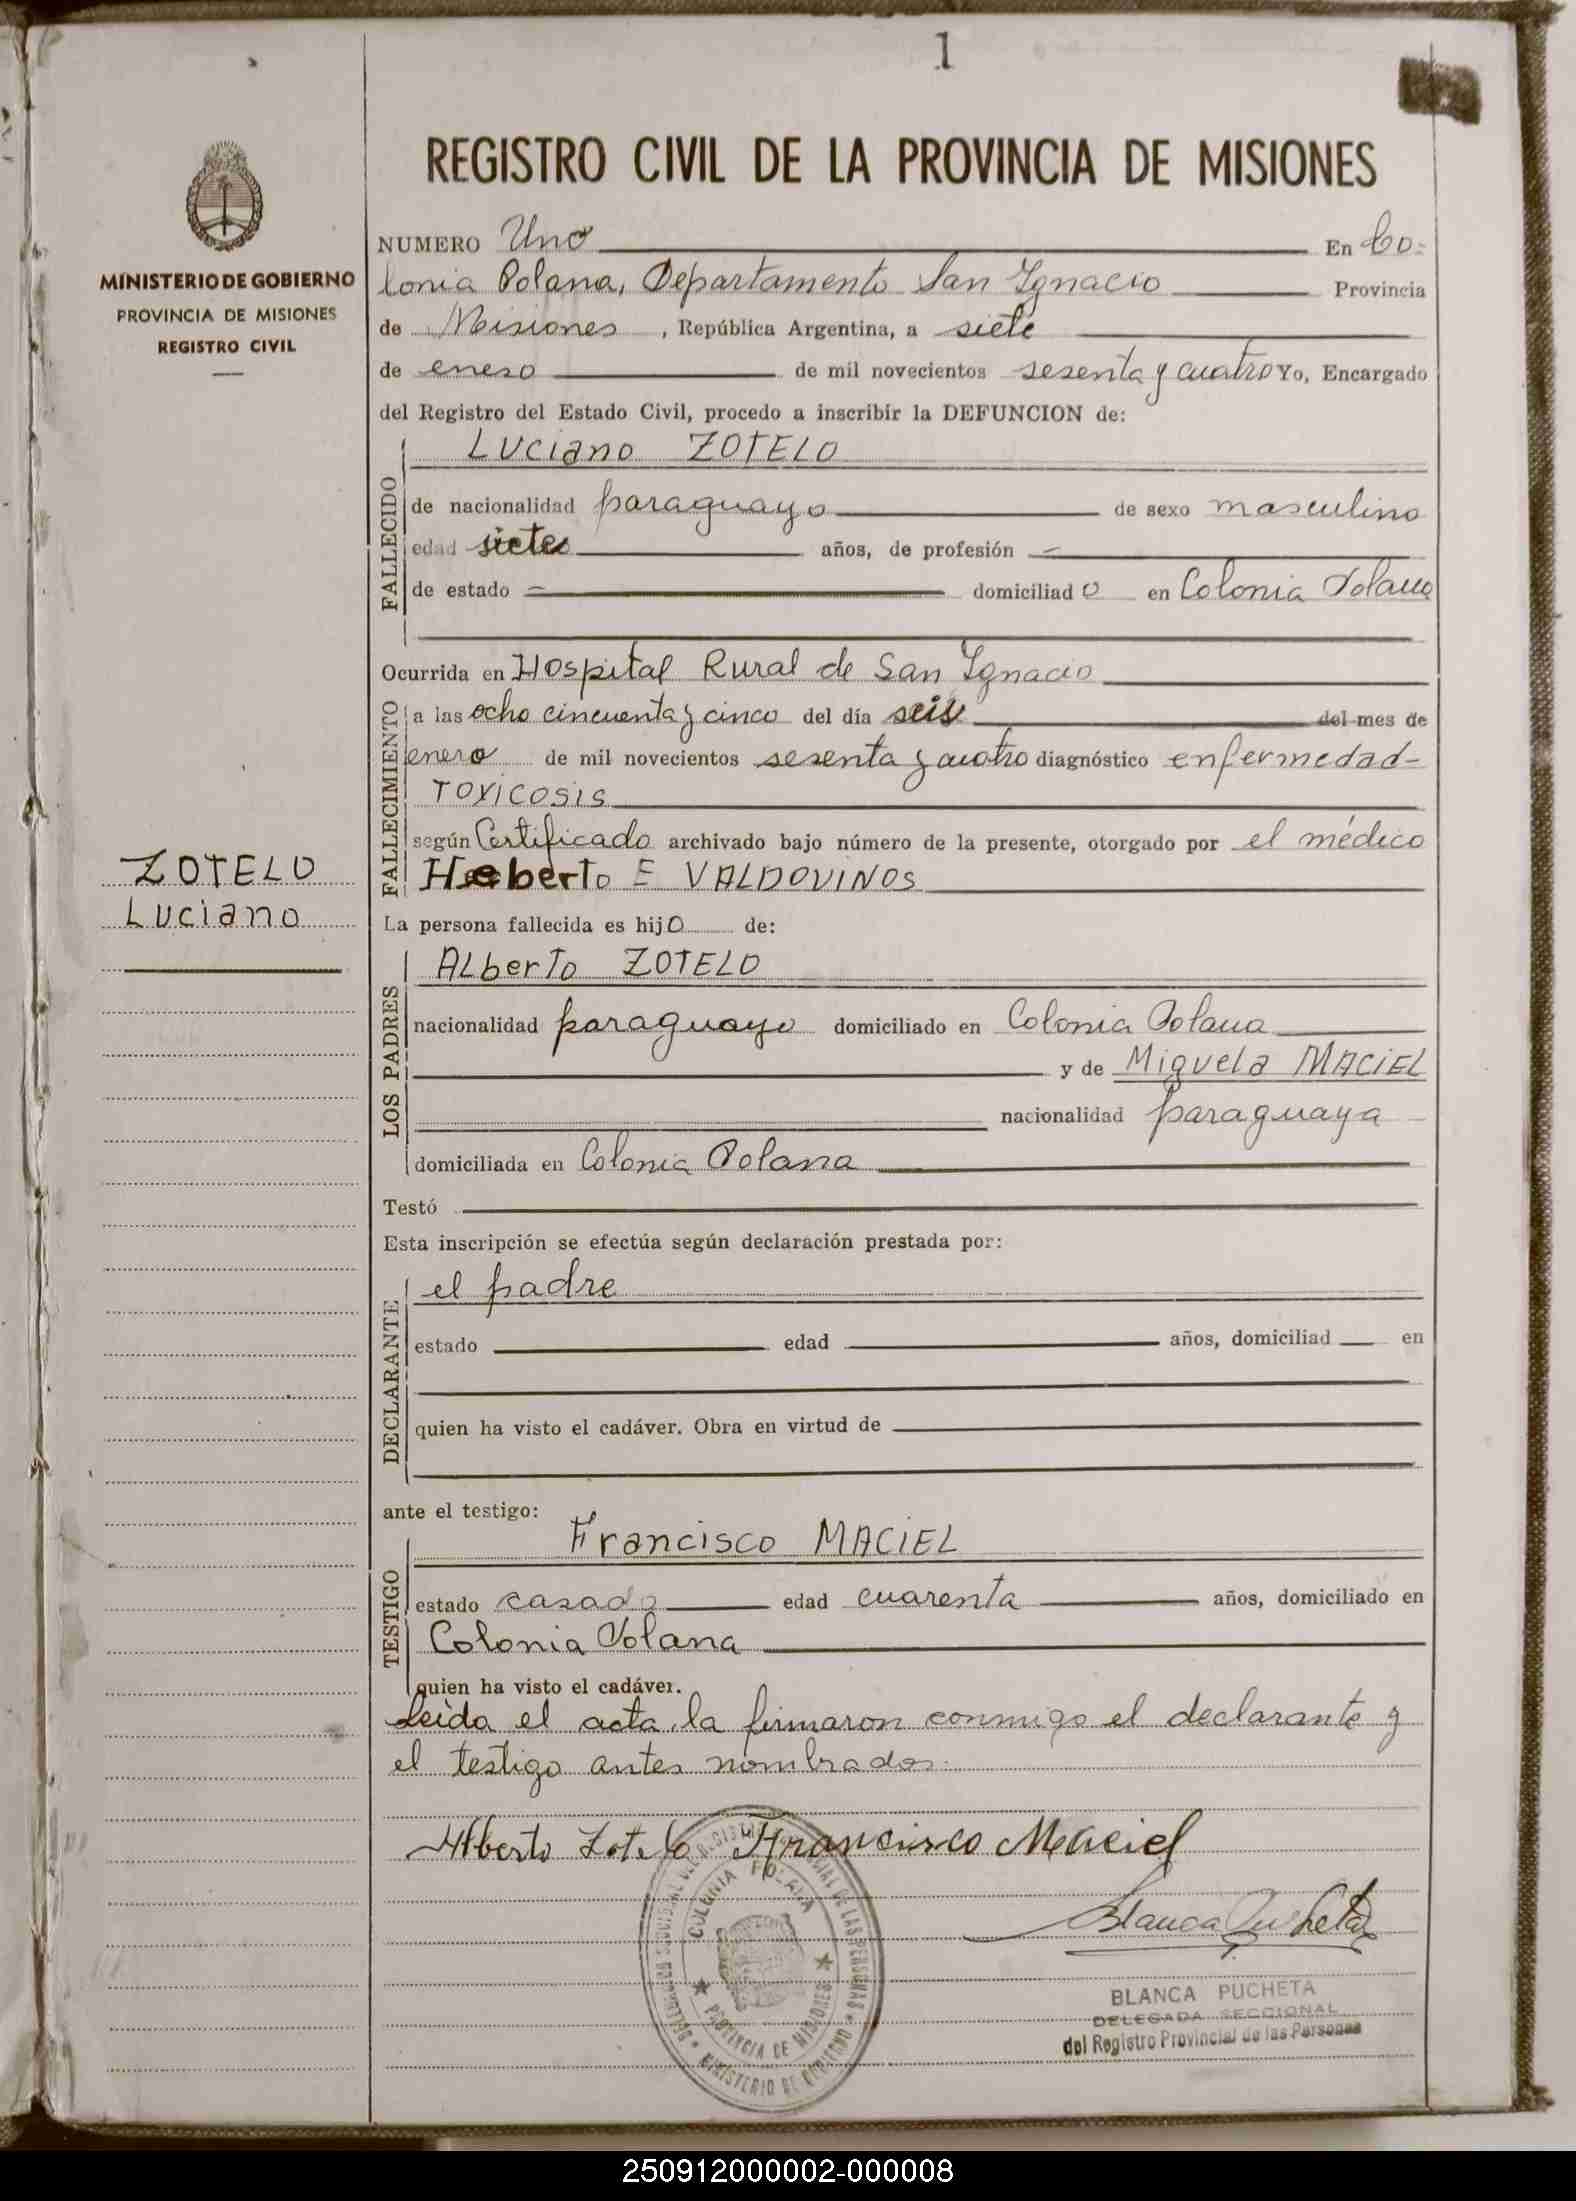 1
REGISTRO CIVIL DE LA PROVINCIA DE MISIONES
MINISTERIO DE GOBIERNO
PROVINCIA DE MISIONES
REGISTRO CIVIL
NUMERO Uno En Co-
lonia Polana, Departamento San Ignacio Provincia
de Misiones, República Argentina, a siete
de enero de mil novecientos sesenta y cuatro Yo, Encargado
del Registro del Estado Civil, procedo a inscribir la DEFUNCION de:
FALLECIDO
Luciano ZOTELO
de nacionalidad paraguayo de sexo masculino
edad siete años, de profesión —
de estado — domiciliado en Colonia Polana
Ocurrida en Hospital Rural de San Ignacio
FALLECIMIENTO
a las ocho cincuenta y cinco del día seis del mes de
enero de mil novecientos sesenta y cuatro diagnóstico enfermedad-
Toxicosis
según Certificado archivado bajo número de la presente, otorgado por el médico
Heberto E VALDOVINOS
ZOTELO
Luciano
La persona fallecida es hijo de:
LOS PADRES
Alberto ZOTELO
nacionalidad paraguayo domiciliado en Colonia Polana
y de Miguela MACIEL
nacionalidad paraguaya
domiciliada en Colonia Polana
Testó
Esta inscripción se efectúa según declaración prestada por:
DECLARANTE
el padre
estado edad años, domiciliad en
quien ha visto el cadáver. Obra en virtud de
ante el testigo:
TESTIGO
Francisco MACIEL
estado casado edad cuarenta años, domiciliado en
Colonia Polana
quien ha visto el cadáver.
Leída el acta, la firmaron conmigo el declarante y
el testigo antes nombrados.
Alberto Zotelo Francisco Maciel
COLONIA POLANA
PROVINCIA DE MISIONES
MINISTERIO DE GOBIERNO
Blanca Pucheta
BLANCA PUCHETA
DELEGADA SECCIONAL
del Registro Provincial de las Personas
250912000002-000008